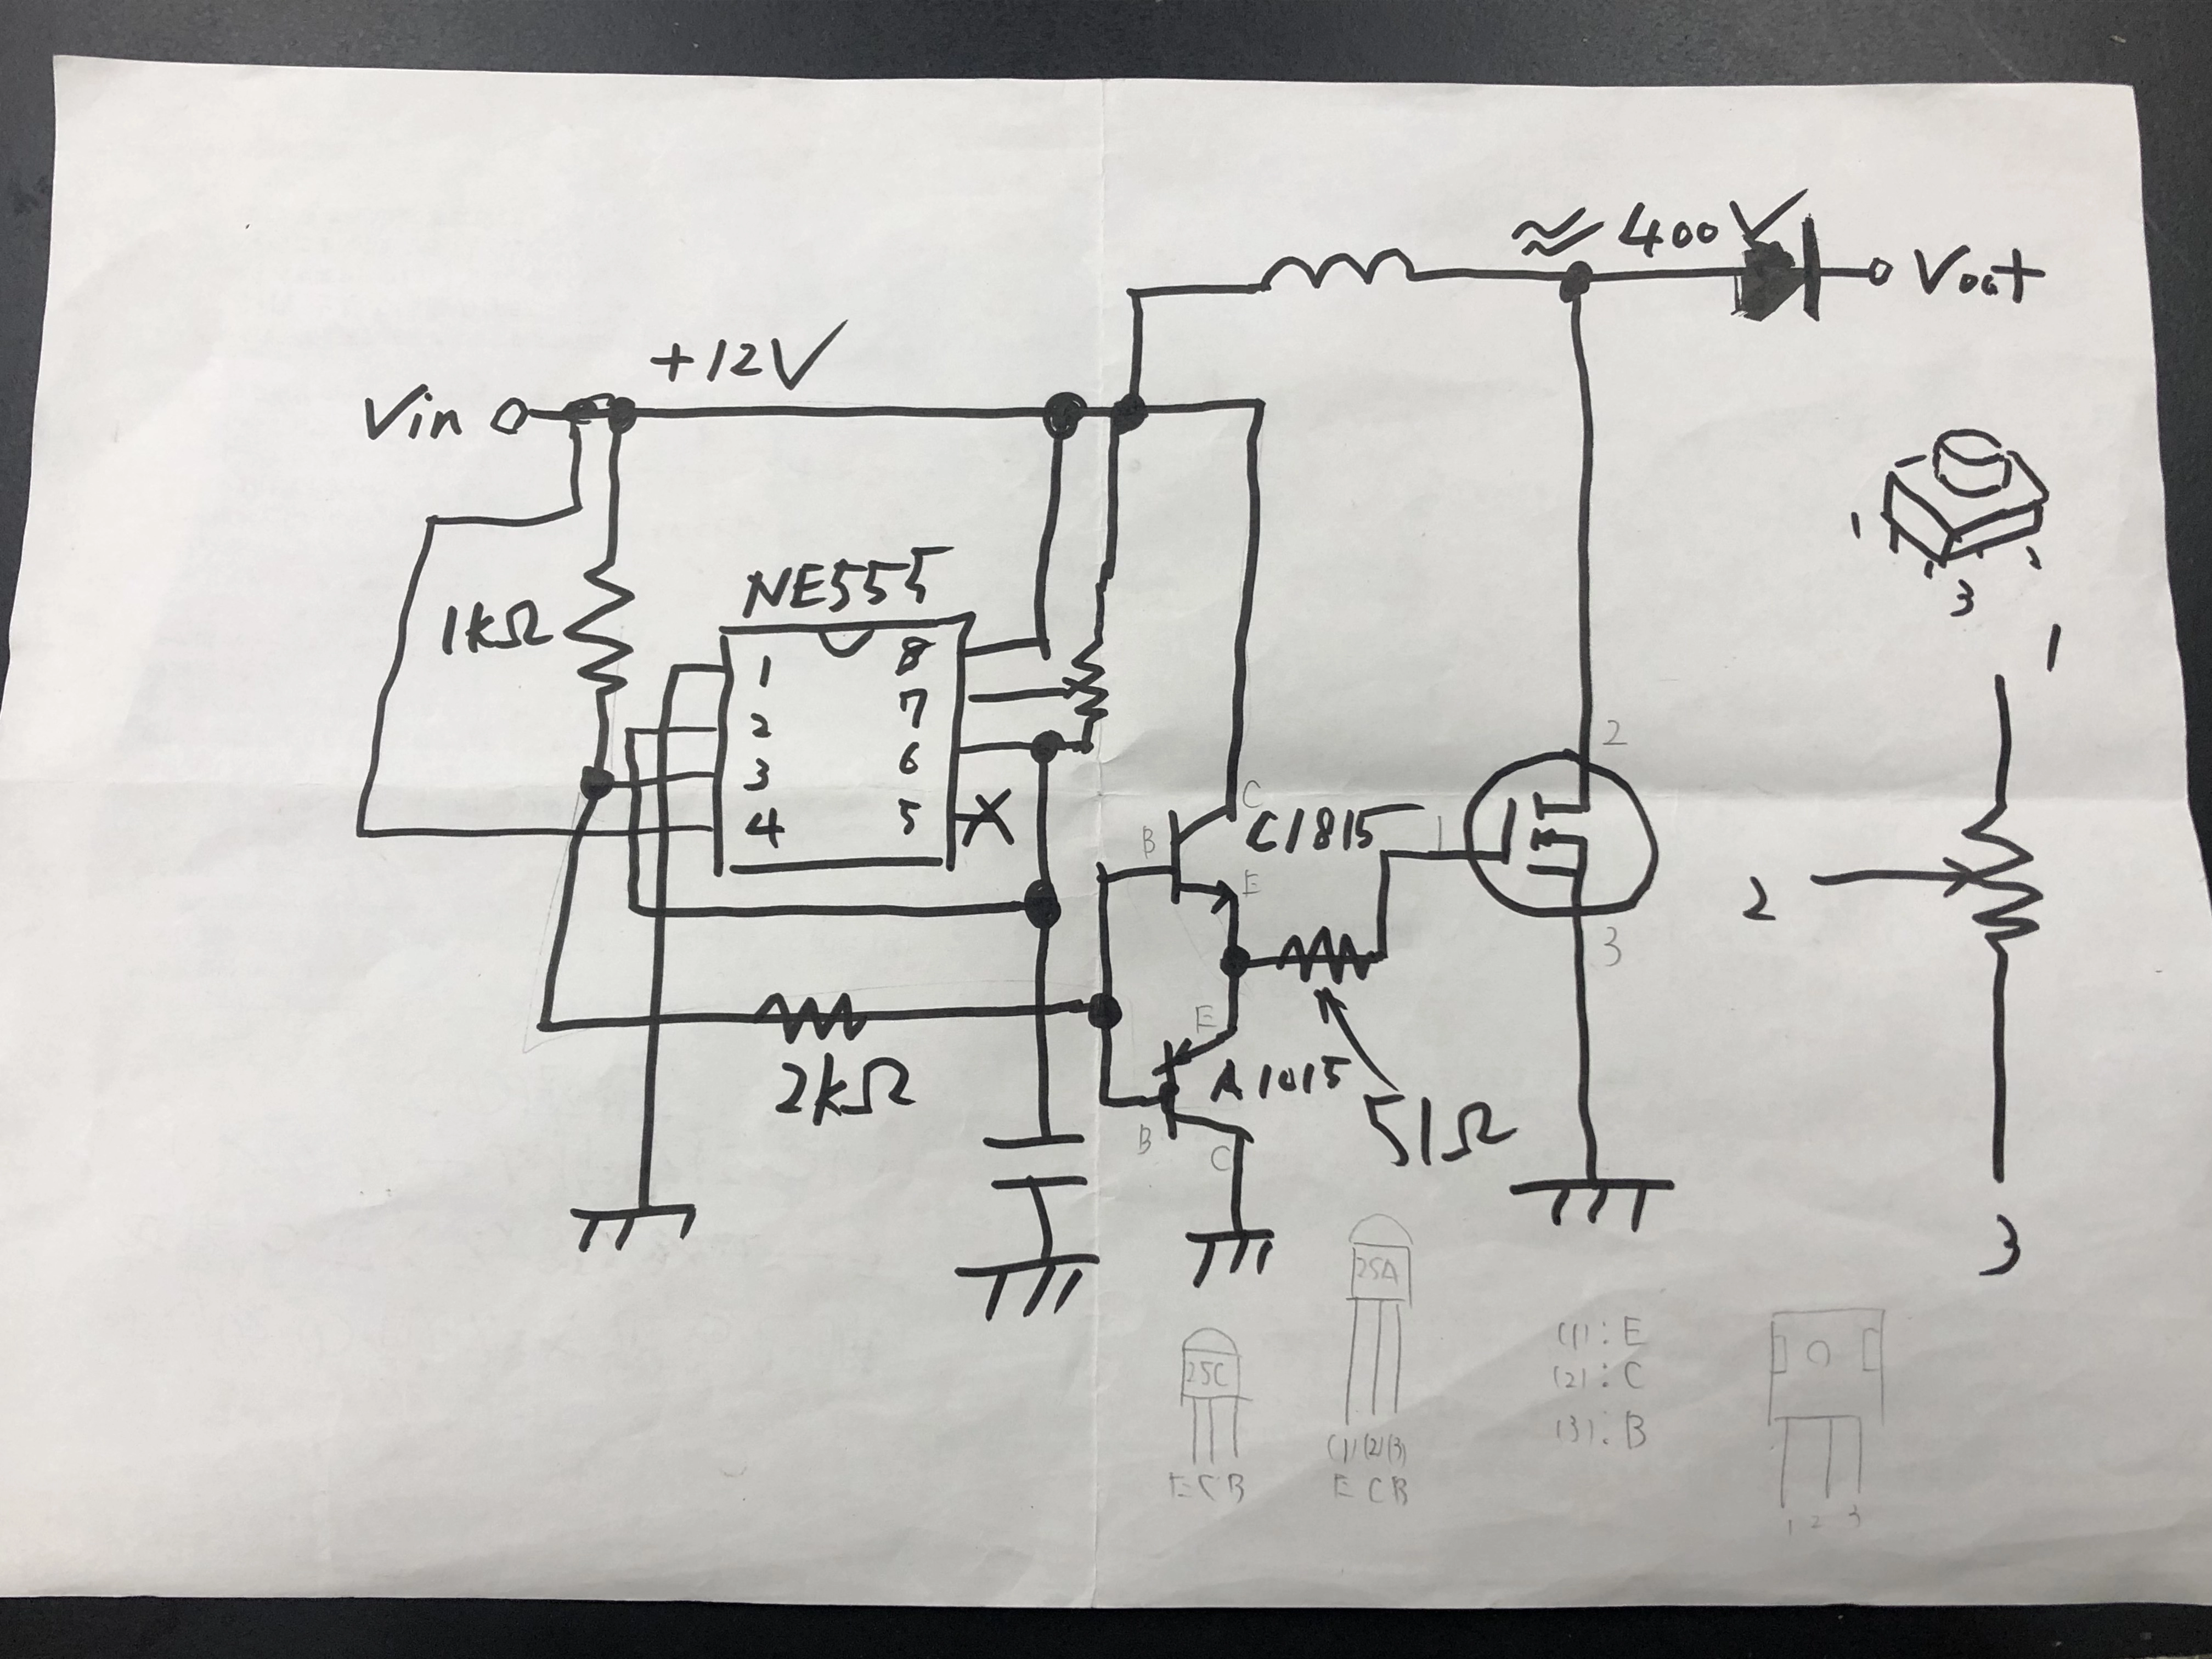 ≈ 400V
Vout
+12V
Vin
3
NE555
1kΩ
1 8
2 7
3 6
4 5
1
2
C
B
C1815
1
E
2
3
E
A1015
2kΩ
51Ω
B
C
3
2SA
2SC
(1) (2) (3)
E C B
E C B
(1): E
(2): C
(3): B
1 2 3